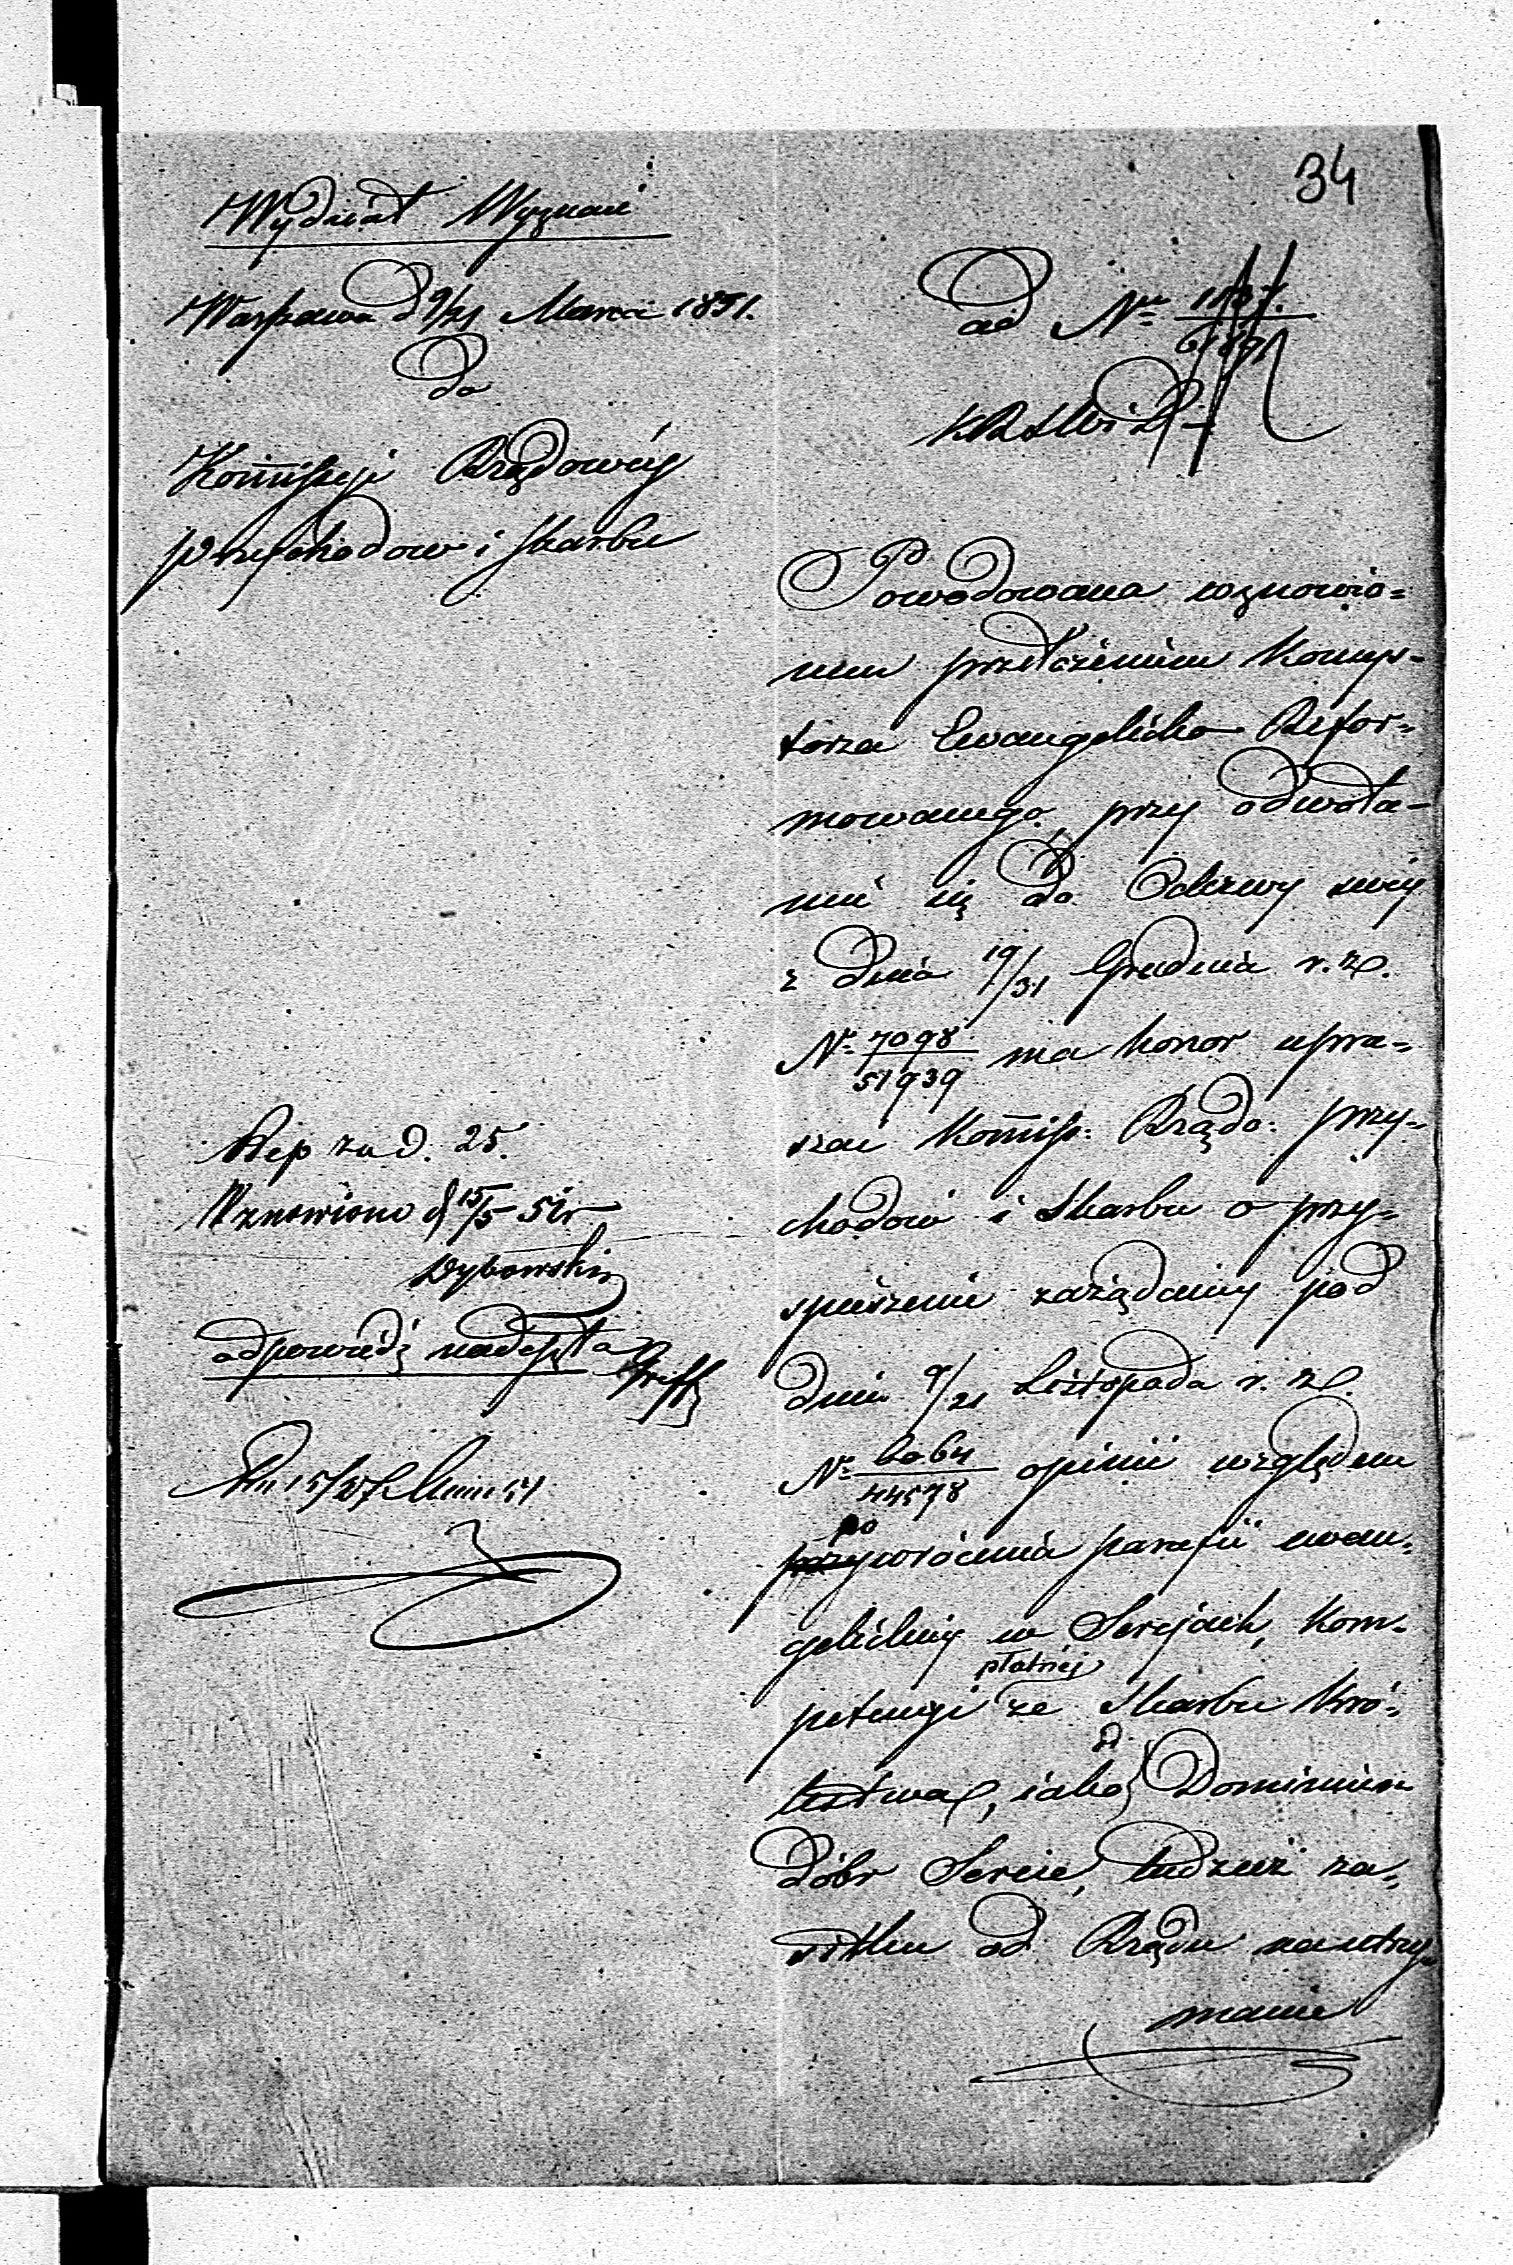 34
Wydział Wyznań
Warszawa d 9/21 Marca 1851.
do
Kommissyi Rządowéy
Przychodow i Skarbu
ad Nr
KRSWiD
Powodowana wznowio=
nem przełożeniem Konsys=
torza Ewangelicko Refor=
mowanego, przy odwoła=
niu się do Odezwy swéy
z dnia 19/31 Grudnia r. z.
Nr 7098/51939 ma honor upra=
szać Kommiss: Rządo: Przy=
chodów i Skarbu o przy=
spieszenie zażądanéy pod
dniem 9/21 Listopada r. z.
Nr 6064/44578 opinii względem
po
przywrócenia parafii ewan=
gelickiéy w Serejach, kom=
płatnéj
petencyi ze Skarbu Kró=
lestwa, iako Dominium
dóbr Sereie, tudzież za=
siłku od Rządu na utrzy=
manie
Rep za d. 25.
Wznowiono d 15/5 51 r
Dybowski
odpowiedź nadeszła